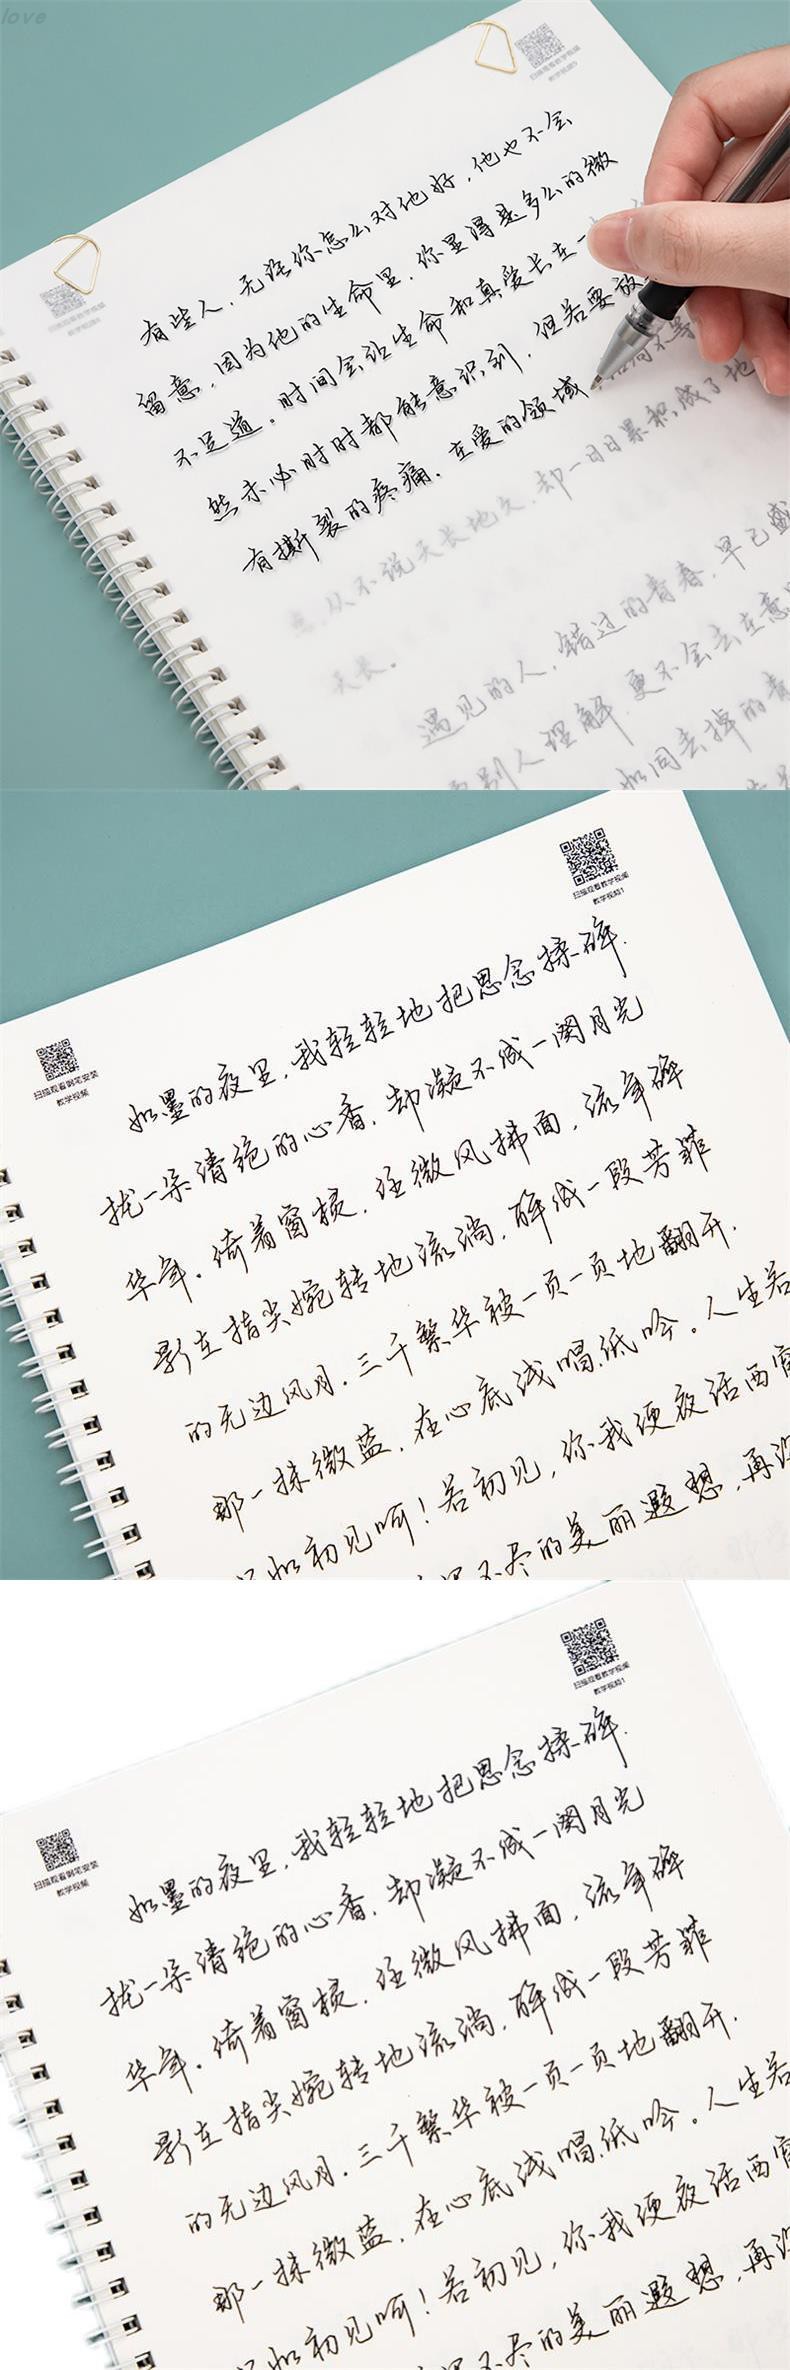 love
扫描观看教学视频
教学视频5
有些人，无论你怎么对他好，他也不会
留意，因为他的生命里，你显得是多么的微
不足道。时间会让生命和真爱长在一
然未必时时都能意识到，但若要放
有撕裂的疼痛．在爱的领域
点，从不说天长地久，却一日日累积，成了地
天长。
遇见的人，错过的青春，早已盛
别人理解，更不会去在意
如同丢掉的青
扫描观看教学视频
教学视频1
扫描观看钢笔安装
教学视频
如墨的夜里，我轻轻地把思念揉碎．
拢一朵清绝的心香，却凝不成一阕月光
华年。倚着窗棂，任微风拂面，流年碎
影在指尖婉转地流淌，碎成一段芳菲
的无边风月．三千繁华被一页一页地翻开．
那一抹微蓝，在心底浅唱低吟。人生若
如初见呵！若初见，你我便夜话西窗
不尽的美丽遐想，再没
扫描观看教学视频
教学视频1
扫描观看钢笔安装
教学视频
如墨的夜里，我轻轻地把思念揉碎．
拢一朵清绝的心香，却凝不成一阕月光
华年。倚着窗棂，任微风拂面，流年碎
影在指尖婉转地流淌，碎成一段芳菲
的无边风月．三千繁华被一页一页地翻开．
那一抹微蓝，在心底浅唱低吟。人生若
如初见呵！若初见，你我便夜话西窗
不尽的美丽遐想，再没